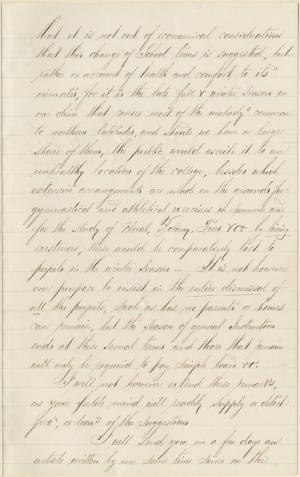 that it is not out of economical considerations
that this change of School terms is suggested, but
rather on account of health and comfort to its
inmates, for it is the late fall & winter season in
our clime that causes most of the maladys common
to northern latitudes, and should we have a large
share of them, the public would ascribe it to an
unhealthy location of the college, besides which
extensive arrangements are made on the grounds for
gymnastical and athletical exercises in summer and
for the study of Floral, Botany, Trees &c &c by living
existences, these would be comparatively lost to
pupils in the winter season — It is not however
our purpose to insist in the entire dismissal of
all the pupils, such as has no parents or homes
can remain, but the Season of general Instruction
ends at these several terms and those that remain
will only be required to pay simple board &c.
I will not however extend these remarks,
as your fertile mind will readily supply or detect
pro's, or con's of the suggestions
I will send you in a few days an
article written by me some time since on the